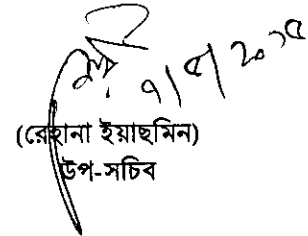 ৭/৫/২০১৫
(রেহানা ইয়াছমিন)
উপ-সচিব